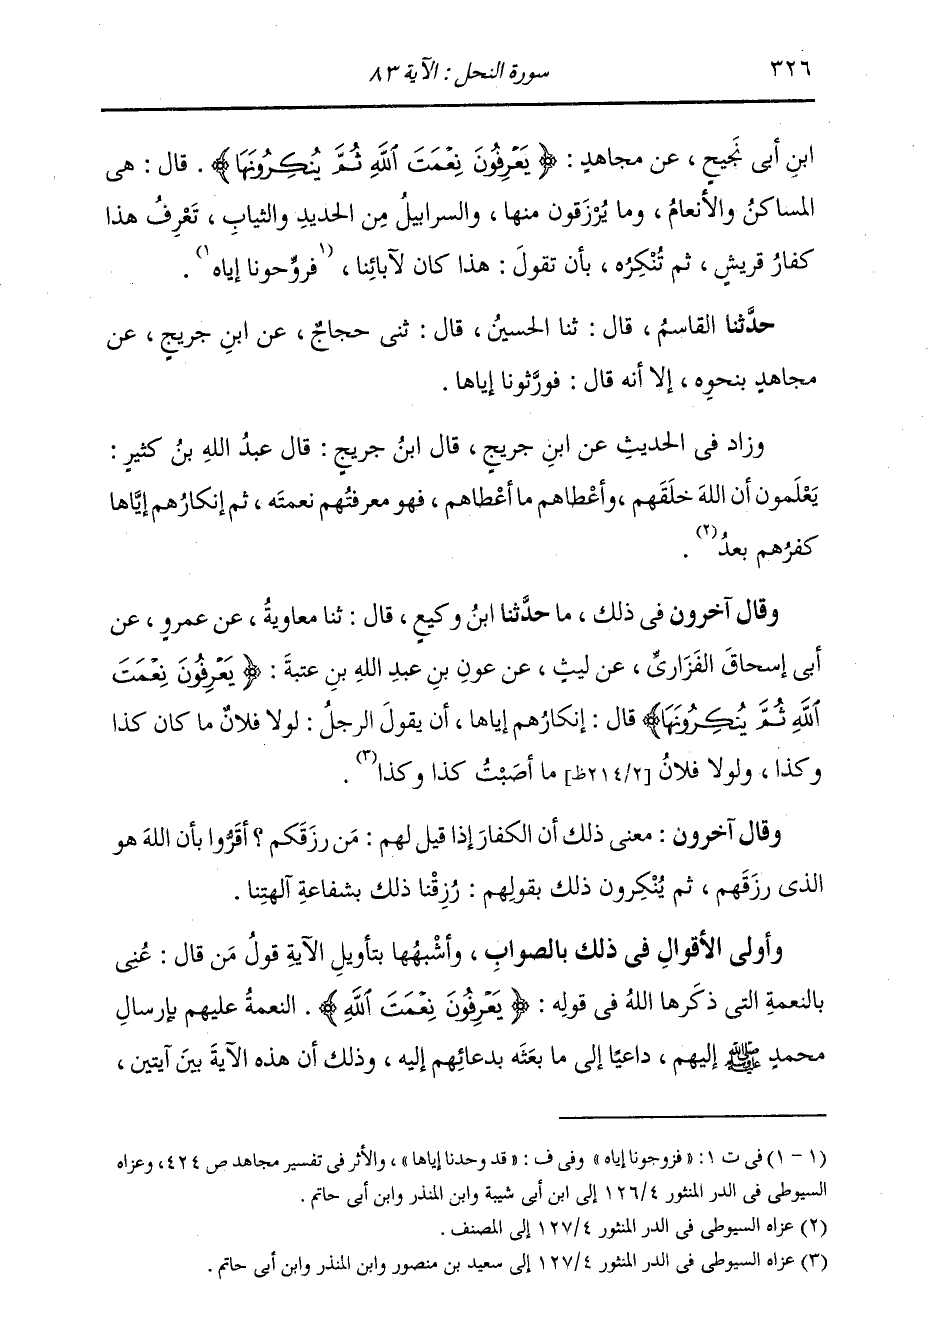 ٣٢٦
سورة النحل : الآية ٨٣
ابنِ أبى نَجيحٍ ، عن مجاهدٍ : ﴿ يَعْرِفُونَ نِعْمَتَ ٱللَّهِ ثُمَّ يُنكِرُونَهَا ﴾ . قال : هى
المساكنُ والأنعامُ ، وما يُرْزَقون منها ، والسرابيلُ مِن الحديدِ والثيابِ ، تَعْرِفُ هذا
كفارُ قريشٍ ، ثم تُنْكِرُه ، بأن تقولَ : هذا كان لآبائِنا ، (١فروَّحونا إياه١) .
حدَّثنا القاسمُ ، قال : ثنا الحسينُ ، قال : ثنى حجاجٌ ، عن ابنِ جريجٍ ، عن
مجاهدٍ بنحوِه ، إلا أنه قال : فورَّثونا إياها .
وزاد فى الحديثِ عن ابنِ جريجٍ ، قال ابنُ جريجٍ : قال عبدُ اللهِ بنُ كثيرٍ :
يَعْلَمون أن اللهَ خلَقَهم ،وأعْطاهم ما أعْطاهم ، فهو معرفتُهم نعمتَه ، ثم إنكارُهم إيَّاها
كفرُهم بعدُ(٢) .
وقال آخرون فى ذلك ، ما حدَّثنا ابنُ وكيعٍ ، قال : ثنا معاويةُ ، عن عمرٍو ، عن
أبى إسحاقَ الفَزَارىِّ ، عن ليثٍ ، عن عونِ بنِ عبدِ اللهِ بنِ عتبةَ : ﴿ يَعْرِفُونَ نِعْمَتَ
ٱللَّهِ ثُمَّ يُنكِرُونَهَا﴾ قال : إنكارُهم إياها ، أن يقولَ الرجلُ : لولا فلانٌ ما كان كذا
وكذا ، ولولا فلانُ [٢١٤/٢ظ] ما أصَبْتُ كذا وكذا(٣) .
وقال آخرون : معنى ذلك أن الكفارَ إذا قيل لهم : مَن رزَقَكم ؟ أقَرُّوا بأن اللهَ هو
الذى رزَقَهم ، ثم يُنْكِرون ذلك بقولِهم : رُزِقْنا ذلك بشفاعةِ آلهتِنا .
وأولى الأقوالِ فى ذلك بالصوابِ ، وأشْبهُها بتأويلِ الآيةِ قولُ مَن قال : عُنِى
بالنعمةِ التى ذكَرها اللهُ فى قولِه : ﴿ يَعْرِفُونَ نِعْمَتَ ٱللَّهِ ﴾ . النعمةُ عليهم بإرسالِ
محمدٍ ﷺ إليهم ، داعيًا إلى ما بعَثَه بدعائِهم إليه ، وذلك أن هذه الآيةَ بينَ آيتين ،
(١ - ١) فى ت ١: « فزوجونا إياه » وفى ف : « قد وحدنا إياها » ، والأثر فى تفسير مجاهد ص ٤٢٤، وعزاه
السيوطى فى الدر المنثور ١٢٦/٤ إلى ابن أبى شيبة وابن المنذر وابن أبى حاتم .
(٢) عزاه السيوطى فى الدر المنثور ١٢٧/٤ إلى المصنف .
(٣) عزاه السيوطى فى الدر المنثور ١٢٧/٤ إلى سعيد بن منصور وابن المنذر وابن أبى حاتم .